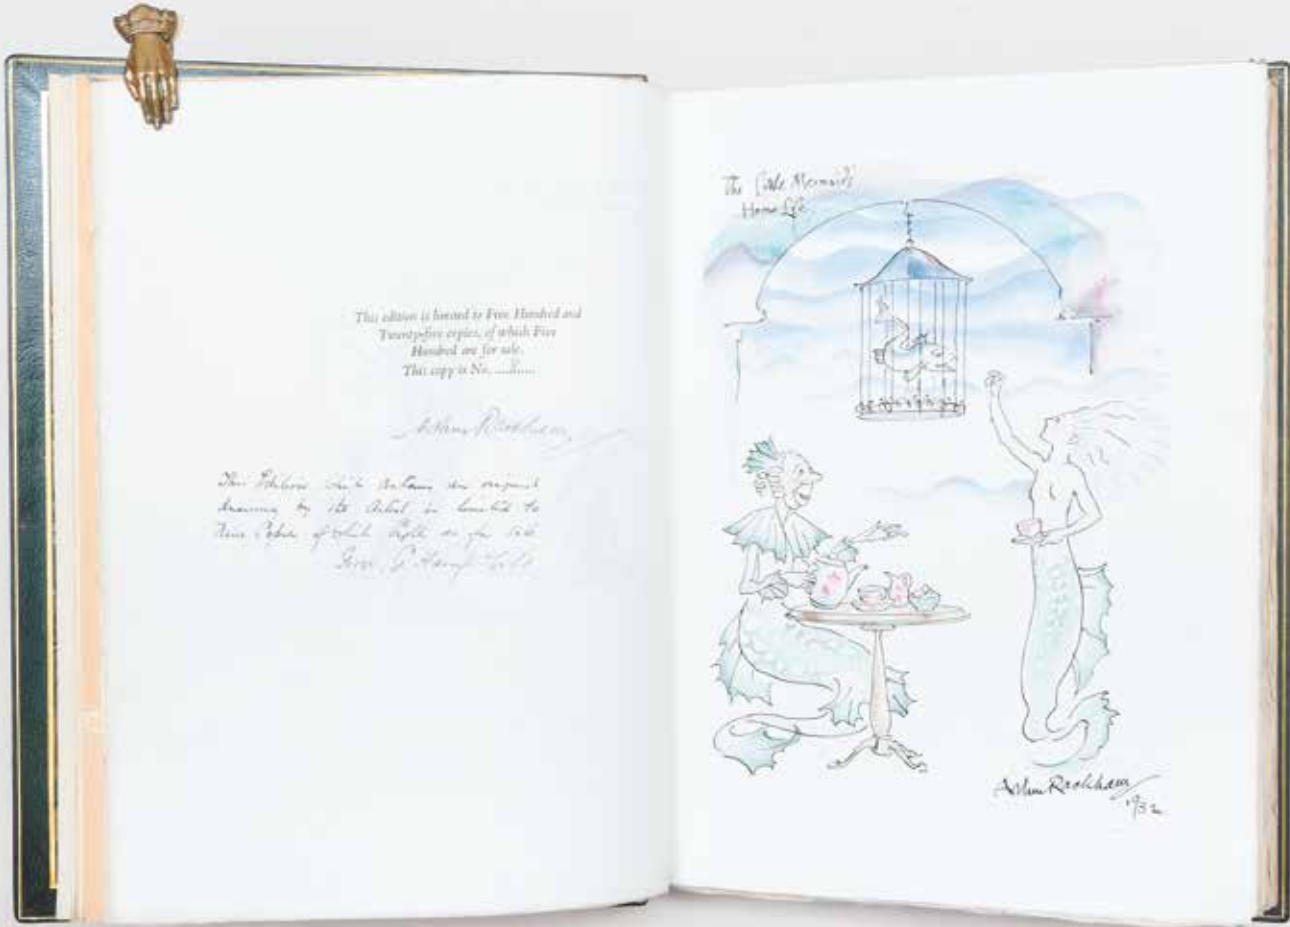 This edition is limited to Five Hundred and
Twenty-five copies, of which Five
Hundred are for sale.
This copy is No. ...........
Arthur Rackham
This Edition which contains an original
drawing by the Artist is limited to
Nine Copies of which Eight are for Sale
Geo. G. Harrap
The Little Mermaid's
Home Life
Arthur Rackham
1932